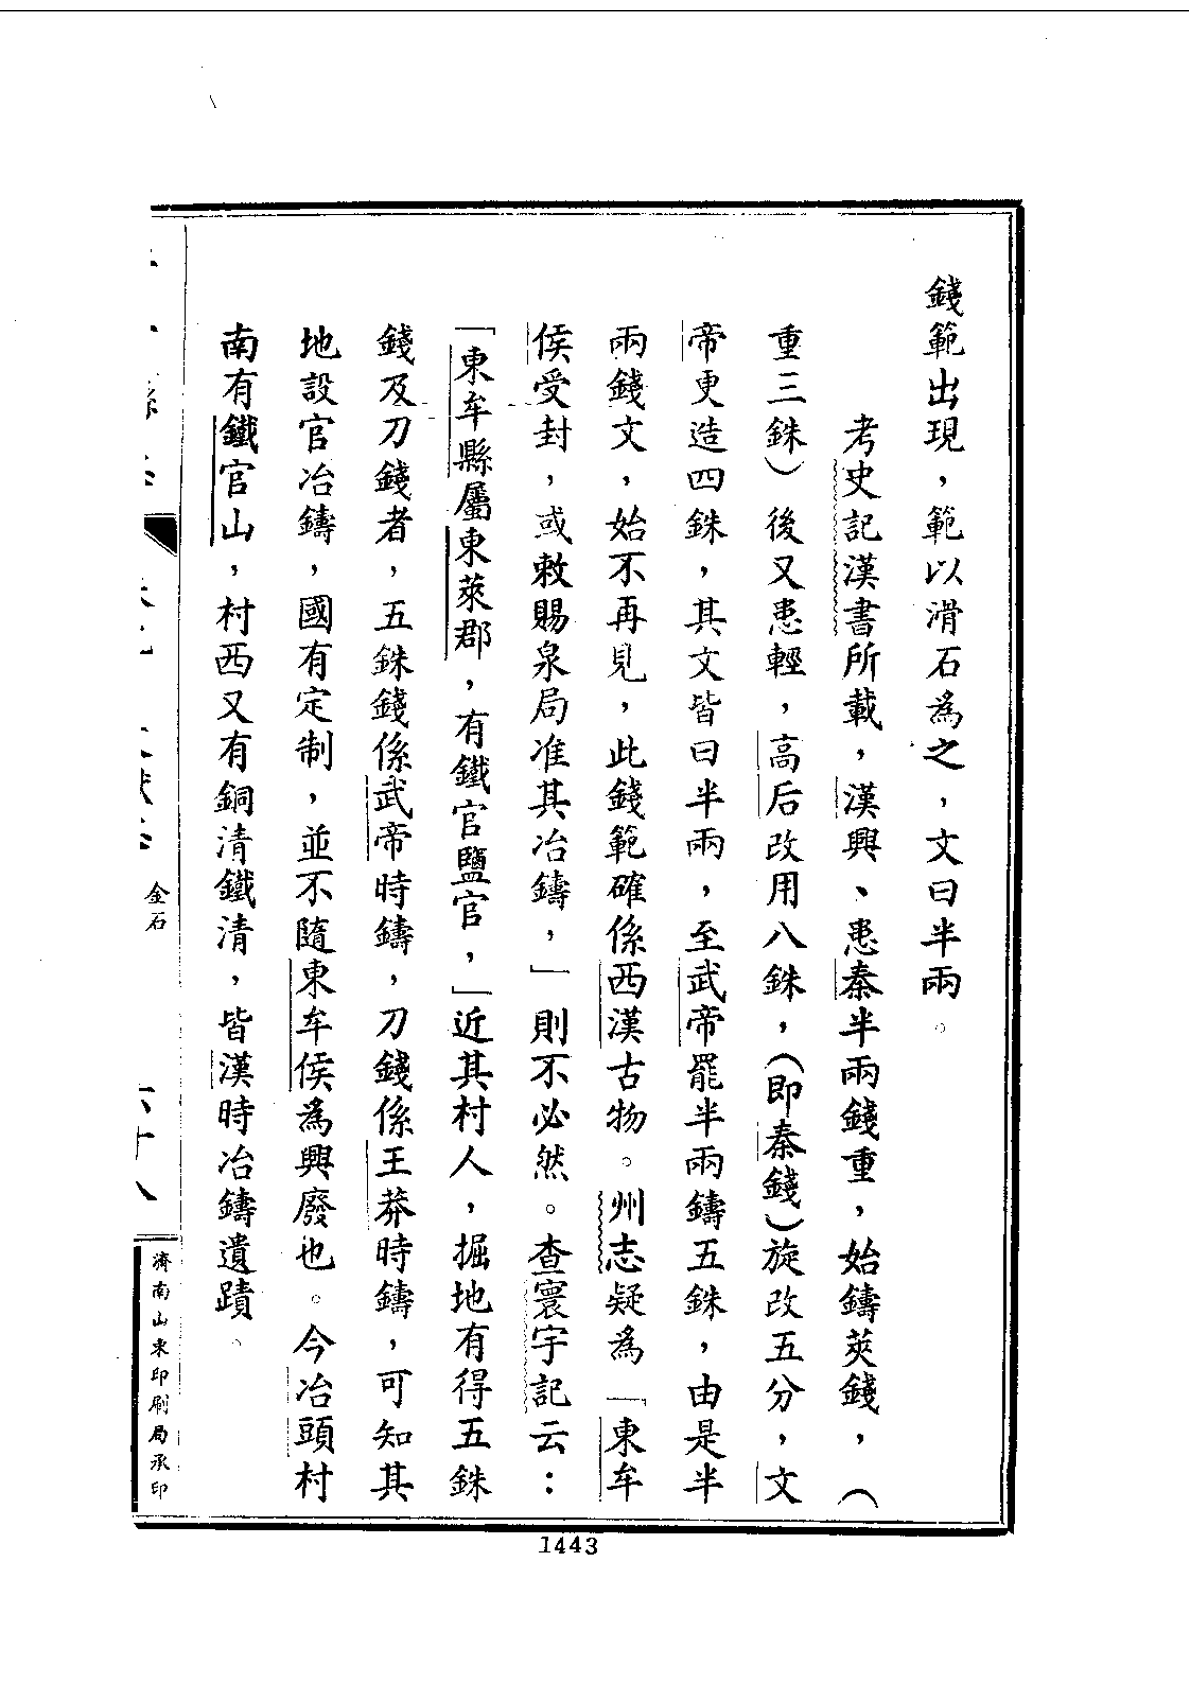 錢範出現，範以滑石為之，文曰半兩。
考史記漢書所載，漢興、患秦半兩錢重，始鑄莢錢，（
重三銖）後又患輕，高后改用八銖，（即秦錢）旋改五分，文
帝更造四銖，其文皆曰半兩，至武帝罷半兩鑄五銖，由是半
兩錢文，始不再見，此錢範確係西漢古物。州志疑為「東牟
侯受封，或敕賜泉局准其冶鑄，」則不必然。查寰宇記云：
「東牟縣屬東萊郡，有鐵官鹽官，」近其村人，掘地有得五銖
錢及刀錢者，五銖錢係武帝時鑄，刀錢係王莽時鑄，可知其
地設官冶鑄，國有定制，並不隨東牟侯為興廢也。今冶頭村
南有鐵官山，村西又有銅清鐵清，皆漢時冶鑄遺蹟。
金石
六十八
濟南山東印刷局承印
1443